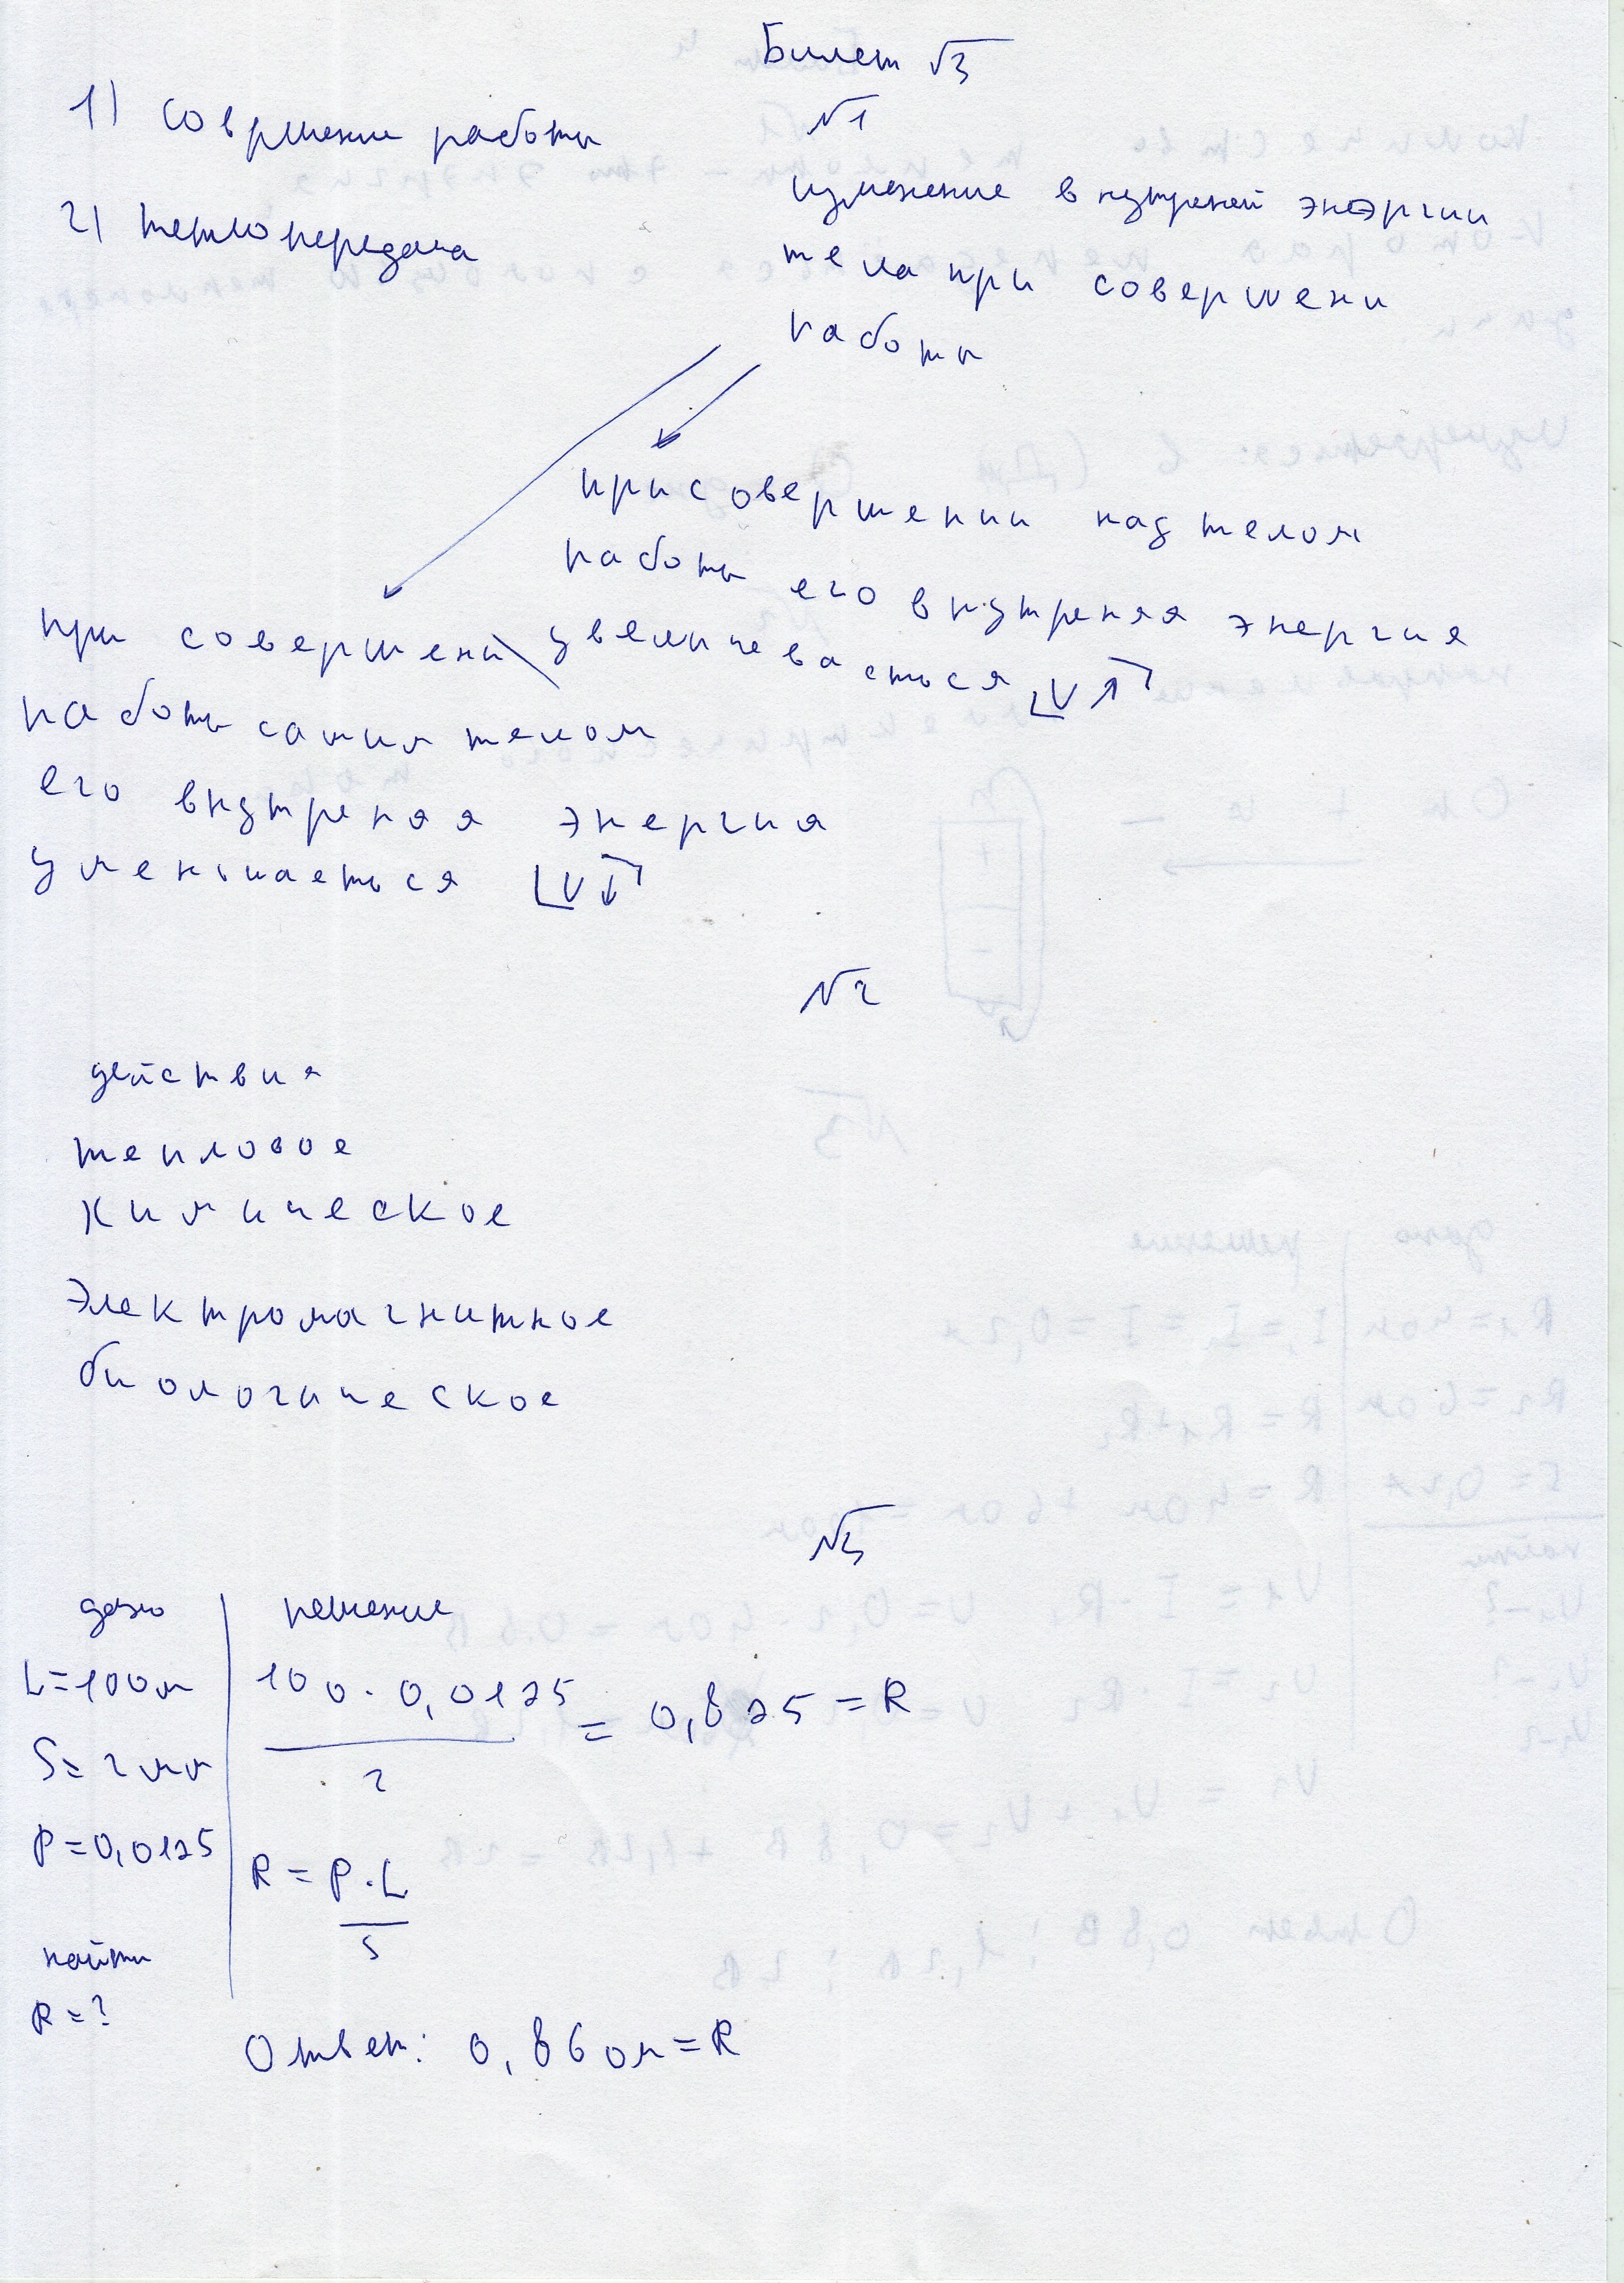 Билет √3
№1
1) совршение работы
2) теплопередача
изменение внутреней энэргии
тела при совершени
работы
при совершении над телом
работы его внутреняя энергия
увеличеваеться [V↑]
при совершени
работы самим телом
его внутреняя энергия
уменьшаеться [V↓]
№2
действия
тепловое
химическое
Электромагнитное
биологическое
№3
дано
L=100м
S=2мм
P=0,0175
найти
R=?
решение
100·0,0175
2
= 0,875 = R
R = P·L
S
Ответ: 0,86ом=R